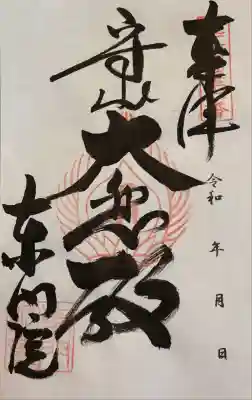 奉拝
令和 年 月 日
守山
大悲殿
東門院